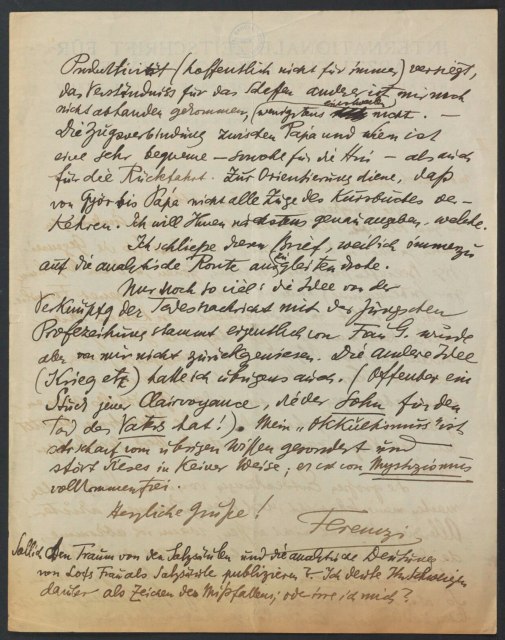 Produktivität (hoffentlich nicht für immer) versiegt,
das Verständniss für das Schaffen anderer ist mir noch
nicht abhanden gekommen, (wenigstens einstweilen nicht. —
Die Zugsverbindung zwischen Pápa und Wien ist
eine sehr bequeme — sowohl für die Hin — als auch
für die Rückfahrt. Zur Orientierung diene, daß
von Györ bis Pápa nicht alle Züge des Kursbuches ver-
kehren. Ich will Ihnen nächstens genau angeben, welche.
Ich schließe diesen Brief, weil ich immerzu
auf die analytische Route auszugleiten drohe.
Nur noch so viel: die Idee von der
Verknüpfg der Todesnachricht mit der Jungschen
Profezeihung stammt eigentlich von Frau G. wurde
aber von mir nicht zurückgewiesen. Die andere Idee
(Krieg etz) hatte ich übrigens auch. (Offenbar ein
Stück jener Clairvoyance, die der Sohn für den
Tod des Vaters hat!). Mein „Okkultismus" ist
sehr scharf vom übrigen Wissen gesondert und
stört dieses in keiner Weise; er ist von Mystizismus
vollkommen frei.
Herzliche Grüße!
Ferenczi
Soll ich den Traum von den Salzsäulen und die analytische Deutung
von Lots Frau als Salzsäule publizieren? – Ich deute Ihr Schweigen
darüber als Zeichen des Mißfallens; oder irre ich mich?